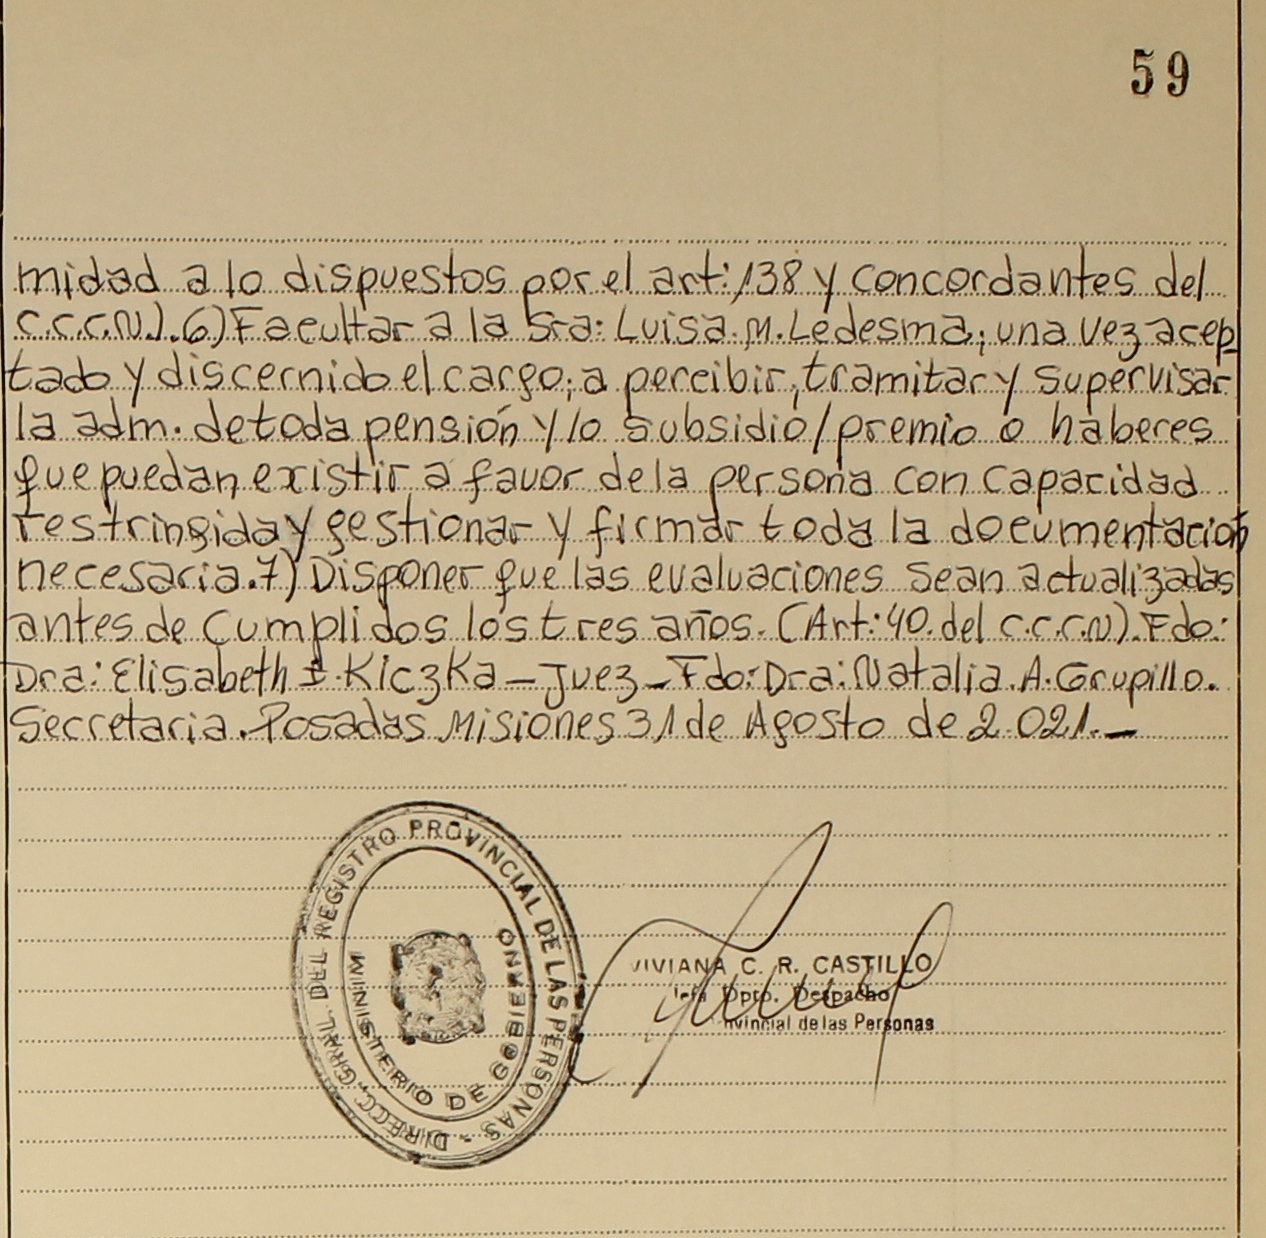 59
midad a lo dispuestos por el art: 138 y concordantes del
C.C.C.N.). 6) Facultar a la Sra: Luisa. M. Ledesma; una vez acep-
tado y discernido el cargo; a percibir, tramitar y supervisar
la adm. de toda pensión y/o subsidio/premio o haberes
que puedan existir a favor de la persona con capacidad
restringida y gestionar y firmar toda la documentación
necesaria. 7) Disponer que las evaluaciones sean actualizadas
antes de cumplidos los tres años. (Art: 40. del C.C.C.N). Fdo:
Dra: Elisabeth I. Kiczka - Juez - Fdo: Dra: Natalia. A. Grupillo.
Secretaria. Posadas Misiones 31 de Agosto de 2.021. -
DIRECC. GRAL. DEL REGISTRO PROVINCIAL DE LAS PERSONAS -
MINISTERIO DE GOBIERNO
VIVIANA C. R. CASTILLO
Dpto. Despacho
de las Personas